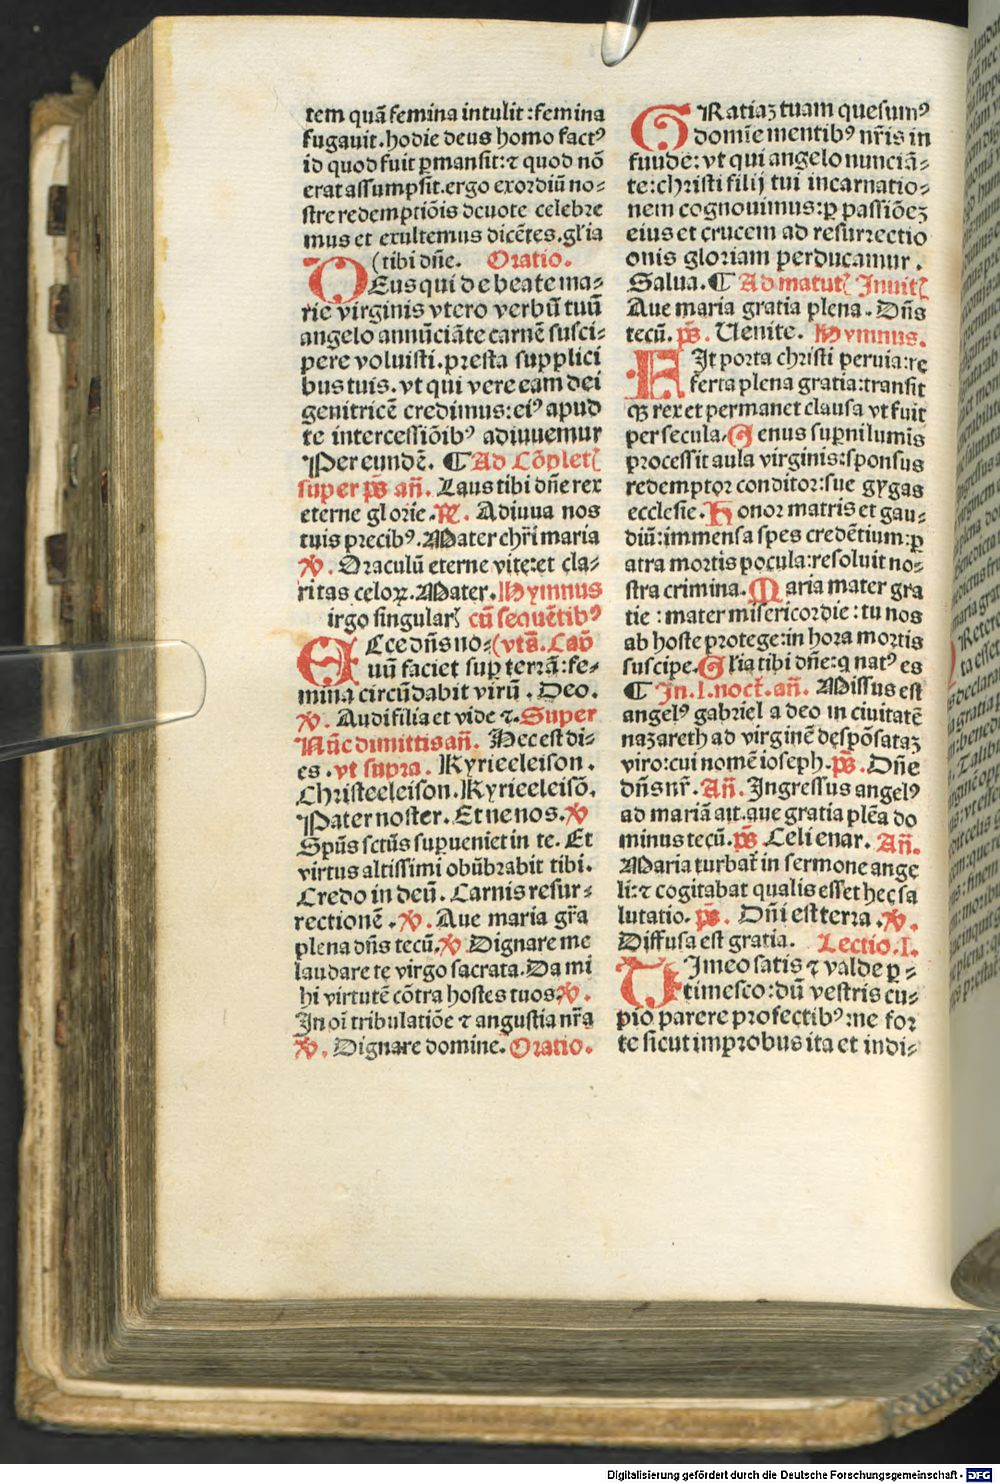 tem quā femina intulit:femina
fugauit.hodie deus homo factꝰ
id quod fuit ꝑmansit:⁊ quod nō
erat assumpsit.ergo exordiū no⸗
stre redemptiōis deuote celebre
mus et exultemus dicētes.gľia
(tibi dn̄e. Oratio.
DEus qui de beate ma⸗
rie virginis vtero verbū tuū
angelo annūciāte carnē susci⸗
pere voluisti.presta supplici
bus tuis.vt qui vere eam dei
genitricē credimus:eiꝰ apud
te intercessiōibꝰ adiuuemur
Per eundē. ¶ Ad Cōplet
super p̄s an̄. Laus tibi dn̄e rex
eterne glorie.℟. Adiuua nos
tuis precibꝰ.Mater chr̄i maria
℣. Oraculū eterne vite:et cla⸗
ritas celoꝝ.Mater.Hymnus
irgo singular cū sequētibꝰ
ECce dn̄s no⸗(vts̄.Cap̄
uū faciet suꝑ terrā:fe⸗
mina circūdabit virū . Deo.
℣. Audi filia et vide ⁊.Super
Nūc dimittis an̄. Hec est di⸗
es . vt supra. Kyrieeleison .
Christeeleison.Kyrieeleisō.
Pater noster. Et ne nos.℣
Sp̄us sctūs suꝑueniet in te. Et
virtus altissimi obūbrabit tibi.
Credo in deū. Carnis resur⸗
rectionē .℣. Aue maria gr̄a
plena dn̄s tecū.℣ Dignare me
laudare te virgo sacrata.Da mi
hi virtutē cōtra hostes tuos.℣.
In oī tribulatiōe ⁊ angustia nr̄a
℣. Dignare domine. Oratio.
GRatiaꝫ tuam quesumꝰ
domīe mentibꝰ nr̄is in
funde:vt qui angelo nunciā⸗
te:christi filij tui incarnatio⸗
nem cognouimus:ꝑ passiōeꝫ
eius et crucem ad resurrectio
onis gloriam perducamur .
Salua. ¶ Ad matut Inuit
Aue maria gratia plena . Dn̄s
tecū. p̄s. Uenite. Hymnus.
FIt porta christi peruia:re
ferta plena gratia:transit
qꝫ rex et permanet clausa vt fuit
per secula.Genus suꝑni lumis
processit aula virginis:sponsus
redemptor conditor:sue gygas
ecclesie.Honor matris et gau⸗
diū:immensa spes credētium:ꝑ
atra mortis pocula:resoluit no⸗
stra crimina. Maria mater gra
tie : mater misericordie : tu nos
ab hoste protege:in hora mortis
suscipe.Gľia tibi dn̄e:q natꝰ es
¶ In.I.noct.an̄. Missus est
angelꝰ gabriel a deo in ciuitatē
nazareth ad virginē despōsataꝫ
viro:cui nomē ioseph.p̄s. Dn̄e
dn̄s nr̄. An̄. Ingressus angelꝰ
ad mariā ait.aue gratia plēa do
minus tecū.p̄s Celi enar. An̄.
Maria turbat̄ in sermone ange
li:⁊ cogitabat qualis esset hec sa
lutatio. p̄s. Dn̄i est terra .℣.
Diffusa est gratia. Lectio.I.
TImeo satis ⁊ valde ꝑ⸗
timesco:dū vestris cu⸗
pio parere profectibꝰ:ne for
te sicut improbus ita et indi⸗
Digitalisierung gefördert durch die Deutsche Forschungsgemeinschaft - DFG